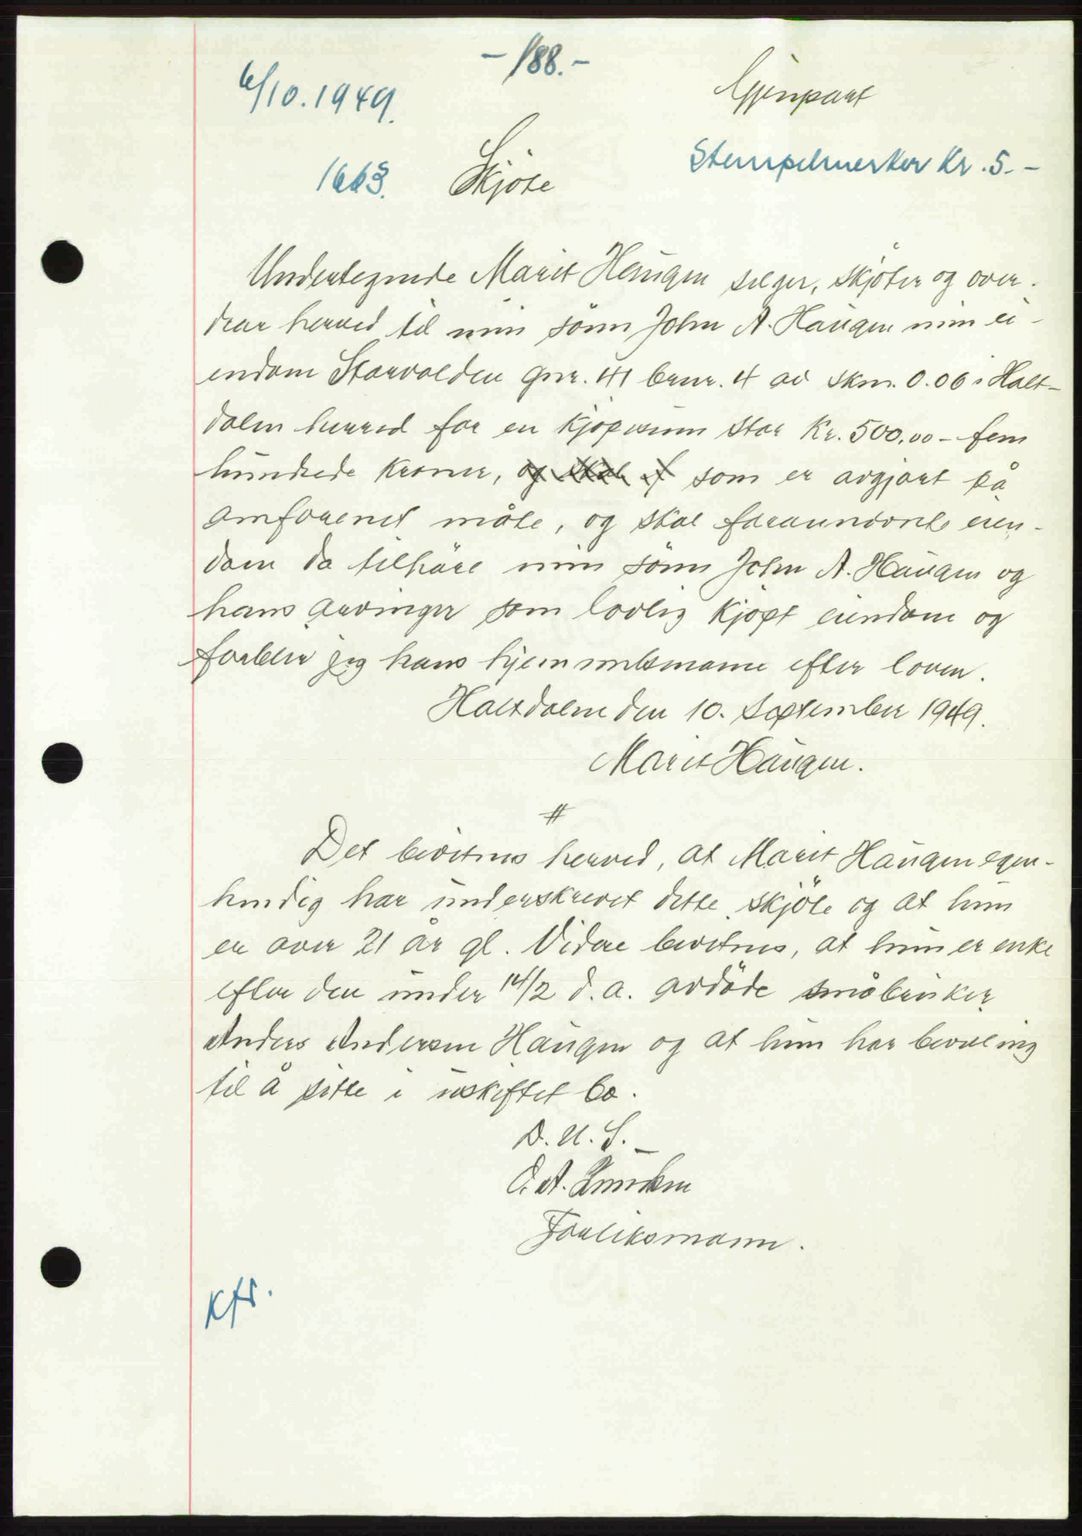 - 188. -
6/10.1949.
Gjenpart
Stempelmerker Kr. 5.-
1663. Skjöte
Undertegnede Marit Haugen selger, skjöter og over-
drar herved til min sönn John A. Haugen min ei-
endom Storvolden gnr. 41 brnr. 4 av skm. 0.06 i Halt-
dalen herred for en kjöpesum stor Kr. 500,00 - fem
hundrede kroner, og skal som er avgjort på
omforenet måte, og skal forannevnte eien-
dom da tilhöre min sönn John A. Haugen og
hans arvinger som lovlig kjöpt eiendom og
forblir jeg hans hjemmelsmann efter loven.
Haltdalen den 10. September 1949.
Marit Haugen.
#
Det bevitnes herved, at Marit Haugen egen-
hendig har underskrevet dette skjöte og at hun
er over 21 år gl. Videre bevitnes, at hun er enke
efter den under 14/2 d.a. avdöde småbruker
Anders Andersen Haugen og at hun har bevilling
til å sitte i uskiftet bo.
D. U. S.
O. A.
Forliksmann.
Kfr.